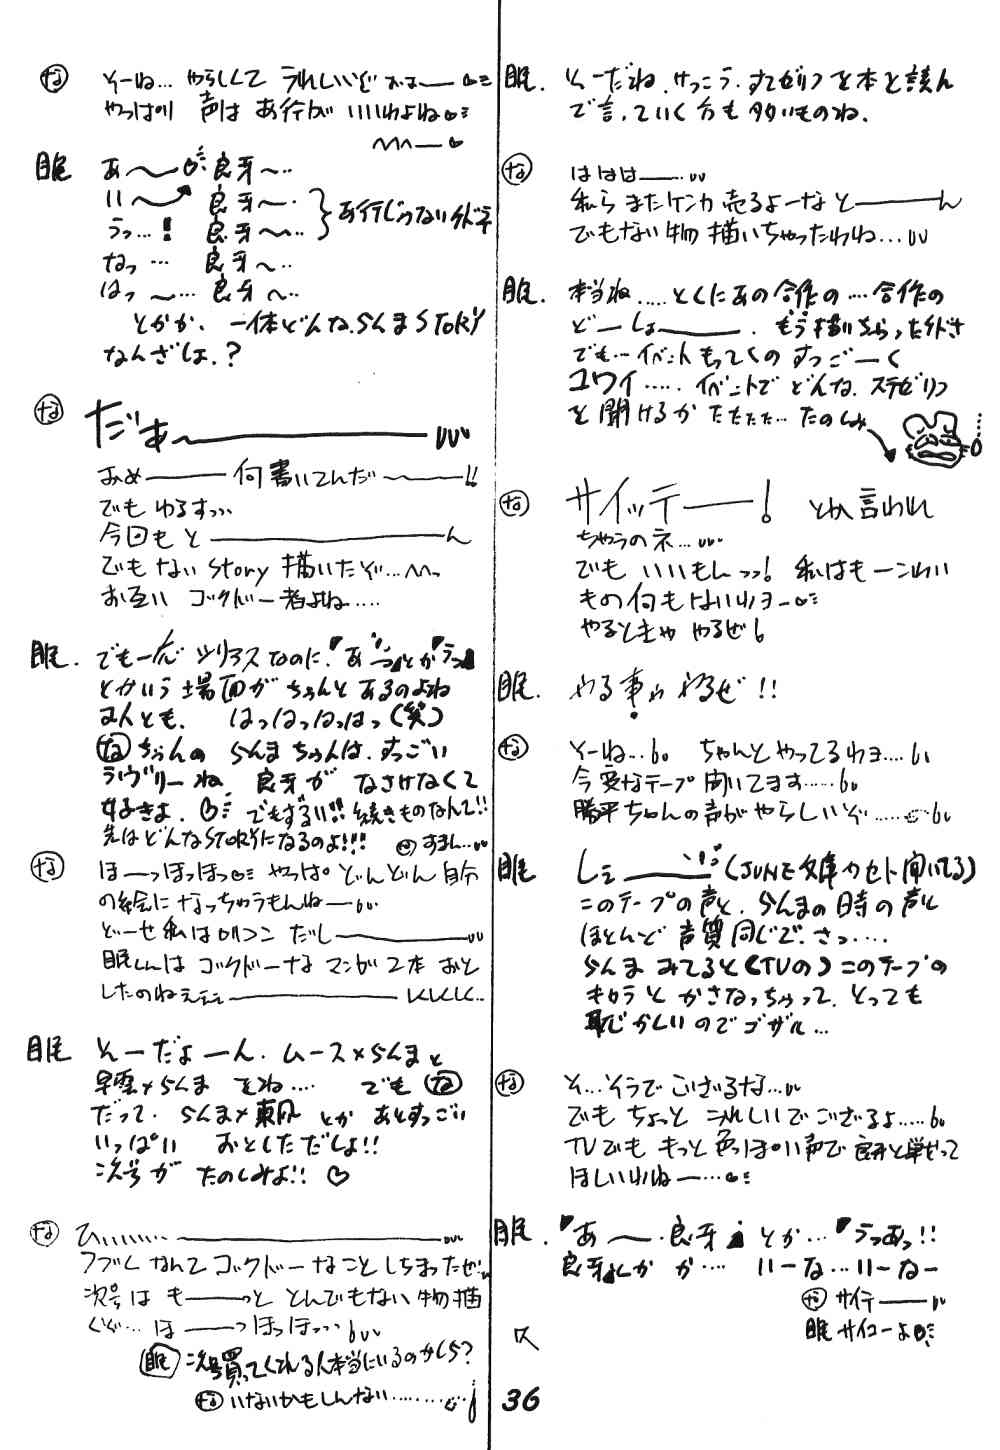 眠. そーだね. けっこう. すてゼリフを本と読ん
で言っていく方も多いものね.
な ははは——…
私らまたケンカ売るよーなと———ん
でもない物描いちゃったわね…
眠. 本当ね..... とくにあの合作の…合作の
どーしょ———. もう描いちゃったけどさ
でも…イベントもってくのすっごーく
コワイ..... イベントでどんな. ステゼリフ
を聞けるかたたたた… たのしみ
な サイッテー——! とか言われ
ちゃうのネ…
でもいいもんっっ! 私はもーこわい
もの何もないわヨー
やるときゃやるぜ
眠. やる事わやるぜ!!
な そーね… ちゃんとやってるわョ....
今変なテープ聞いてます.....
勝平ちゃんの声がやらしいぞ......
眠 し——— (JUNE文庫カセット聞いてる)
このテープの声と. らんまの時の声と
ほとんど声質同じで. さっ....
らんまみてると(TVの)このテープの
キャラとかさなっちゃって. とっても
恥じかしいのでゴザル...
な そ...そうでござるな...
でもちょっとうれしいでござるよ.....
TVでももっと色っぽい声で良牙と戦って
ほしいわねー…
眠. 「あ〜・良牙」とか…「うっあっ!!
良牙」とかか…. いーな…いーなー
な サイテー——
眠 サイコーよ
な そーね… やらしくてうれしいぞおお——
やっぱり声はあ行がいいわよね
眠 あ〜 良牙〜…
い〜 良牙〜・
うっ…! 良牙〜… あ行じゃないけど
なっ… 良牙〜…
はっ〜… 良牙〜…
とかか. 一体どんならんまSTORY
なんざしょ.?
な だぁ〜———
おめ——何書いてんだ〜——!!
でもゆるすっ
今回もと———————ん
でもないstory描いたぞ…
お互いゴックドー者よね....
眠. でもーんシリアスなのに.「あっ」とか「うっ」
とかいう場面がちゃんとあるのよね
2人とも. はっはっはっはっ(笑)
なちゃんのらんまちゃんは. すっごい
ラヴリーね 良牙がなさけなくて
好きよ. でもずるい!! 続きものなんて!!
先はどんなSTORYになるのよ!!! な すまん...
な ほーっほっほっ やっぱ どんどん自分
の絵になっちゃうもんねー
どーせ私はロリコンだし————
眠くんはゴックドーなマンガ2本おと
したのねぇ———— くくくく..
眠 そーだよーん. ムース×らんまと
早雲×らんまをね.... でもな
だって. らんま×東風とかあとすっごい
いっぱいおとしただしょ!!
次号がたのしみよ!! ♡
な ひぃ......———————
フブくなんてゴックドーなことしちまったぜ
次号はも——っととんでもない物描
くぞ… ほ——っほっほっ
眠 次号買ってくれる人本当にいるのかしら?
な いないかもしんない......
36